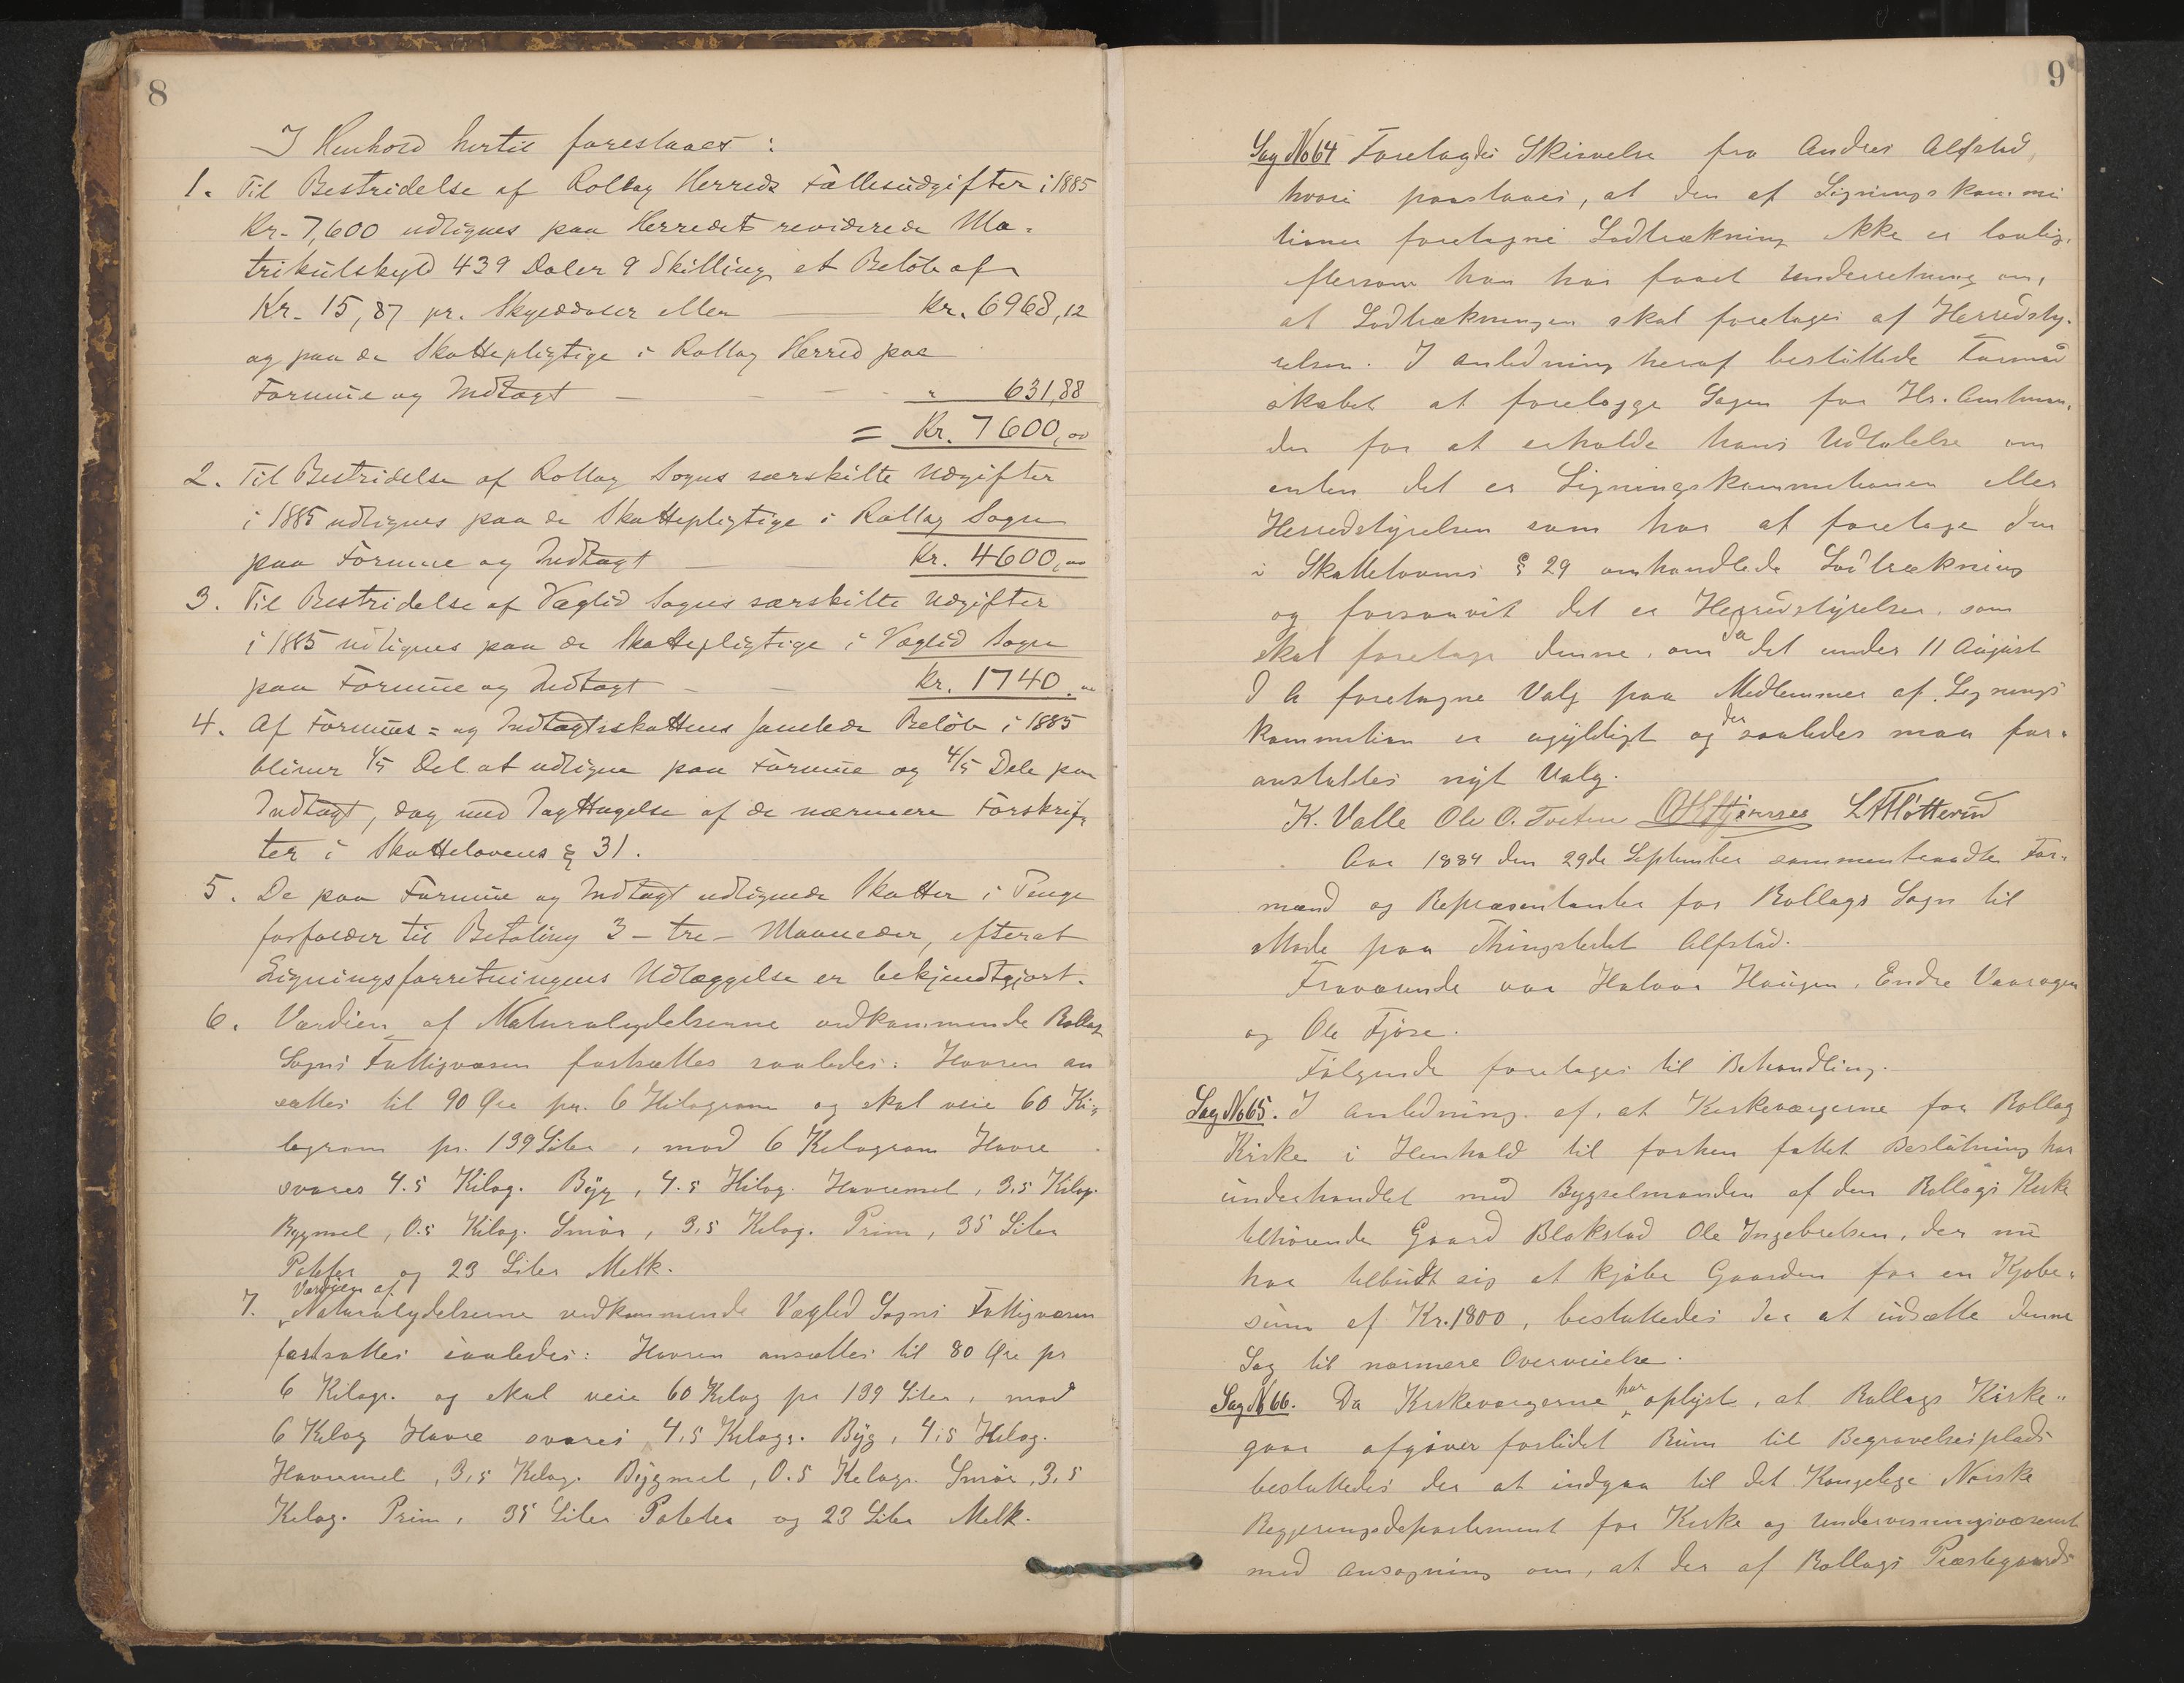 8
I Henhold hertil foreslaaes:
1. Til Bestridelse af Rollag Herreds Fællesudgifter i 1885
Kr. 7,600 udlignes paa Herredets reviderede Ma-
trikulskyld 439 Daler 9 Skilling et Beløb af
Kr. 15,87 pr. Skylddaler eller Kr. 6968,12
og paa de Skattepligtige i Rollag Herred paa
Formue og Indtægt " 631,88
= Kr. 7600,00
2. Til Bestridelse af Rollag Sogns særskilte Udgifter
i 1885 udlignes paa de Skattepligtige i Rollag Sogn
paa Formue og Indtægt Kr. 4600,00
3. Til Bestridelse af Væglid Sogns særskilte Udgifter
i 1885 udlignes paa de Skattepligtige i Væglid Sogn
paa Formue og Indtægt Kr. 1740.00
4. Af Formues= og Indtægtsskattens samlede Beløb i 1885
bliver 1/5 Del at udligne paa Formue og 4/5 Dele paa
Indtægt, dog med Iagttagelse af de nærmere Forskrif-
ter i Skattelovens § 31.
5. De paa Formue og Indtægt udlignede Skatter i Penge
forfalder til Betaling 3 - tre - Maaneder, efterat
Ligningsforretningens Udlæggelse er bekjendtgjort.
6. Værdien af Naturalydelserne vedkommende Rollag
Sogns Fattigvæsen fastsættes saaledes: Havren an
sættes til 90 Øre pr. 6 Kilogram og skal veie 60 Ki-
logram pr. 139 Liter, mod 6 Kilogram Havre
svares 4.5 Kilog. Byg, 4.5 Kilog. Havremel, 3,5 Kilog.
Bygmel, 0.5 Kilog. Smør, 3,5 Kilog. Prim, 35 Liter
Poteter og 23 Liter Melk.
7. Værdien af Naturalydelserne vedkommende Væglid Sogns Fattigvæsen
fastsættes saaledes: Havren ansættes til 80 Øre pr
6 Kilogr. og skal veie 60 Kilog pr 139 Liter, mod
6 Kilog Havre svares 4,5 Kilogr. Byg, 4,5 Kilog.
Havremel, 3,5 Kilog. Bygmel, 0.5 Kilogr. Smør, 3,5
Kilog. Prim, 35 Liter Poteter og 23 Liter Melk.
9
Sag No 64 Foretoges Skrivelse fra Andres Alfstad,
hvori paastaaes, at den af Ligningskommi
tionen foretagne Lodtrækning ikke er lovlig,
eftersom han har faaet Underretning om,
at Lodtrækningen skal foretages af Herredsty-
relsen. I Anledning heraf besluttede Formand
skabet at forelægge Sagen for Hr. Amtman-
den for at erholde hans Udtalelse om
enten det er Ligningskommitionen eller
Herredstyrelsen som har at foretage den
i Skattelovens § 29 omhandlede Lodtrækning
og forsaavit det er Herredstyrelsen, som
skal foretage denne, om da det under 11 August
d A foretagne Valg paa Medlemmer af Lignings
kommition er ugyldigt og der saaledes maa for-
anstaltes nyt Valg.
K. Valle Ole O. Tveten
Aar 1884 den 29de September sammentraadte For-
mænd og Repræsentanter for Rollags Sogn til
Møde paa Thingstedet Alfstad.
Fraværende var Halvor Haugen, Endre Vaaragen
og Ole Fjøse.
Følgende foretages til Behandling.
Sag No 65. I Anledning af, at Kirkeværgerne for Rollag
Kirke i Henhold til forhen fattet Beslutning har
underhandlet med Bygselmanden af den Rollags Kirke
tilhørende Gaard Blokstad Ole Ingebretsen, der nu
har tilbudt sig at kjøbe Gaarden for en Kjøbe-
sum af Kr. 1800, besluttedes der at udsætte denne
Sag til nærmere Overveielse.
Sag No 66. Da Kirkeværgerne har oplyst, at Rollags Kirke-
gaar afgiver forlidet Rum til Begravelsesplads
besluttedes der at indgaa til det Kongelige Norske
Regjeringsdepartement for Kirke og Undervisningsvæsenet
med Ansøgning om, at der af Rollags Præstegaards